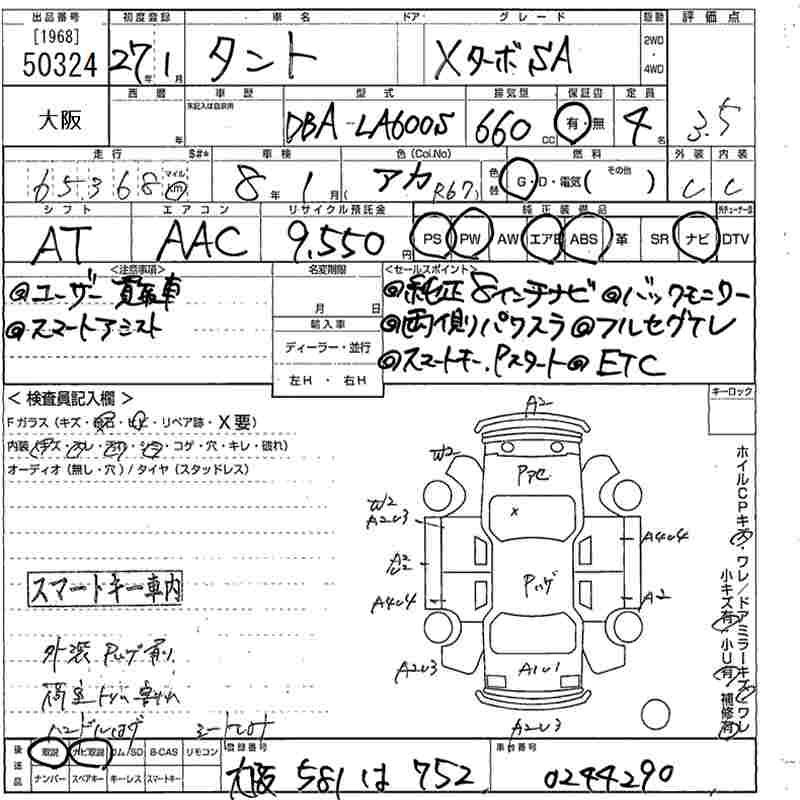 出品番号 初度登録 車名 ドア・ グレード 駆動 評価点
[1968]
50324 27年1月 タント XターボSA 2WD・4WD
西暦 車歴 型式 排気量 保証書 定員
大阪 年 未記入は自家用 DBA-LA600S 660cc 有・無 4名 3.5
走行 $#* 車検 色(Col.No) 燃料 外装 内装
65368 マイル km 8年1月 アカ(R67) 色替 G・D・電気(その他) C C
シフト エアコン リサイクル預託金 純正装備品
AT AAC 9,550円 PS PW AW エアB ABS 革 SR ナビ DTV
<注意事項> 名変期限 <セールスポイント>
@ユーザー買取車 月 日 @純正8インチナビ @バックモニター
@スマートアシスト 輸入車 @両側パワスラ @フルセグテレ
ディーラー・並行 @スマートキー.Pスタート @ETC
左H・右H
<検査員記入欄> キーロック
Fガラス(キズ・飛石・・リペア跡・X要)
内装(キズ・・・・コゲ・穴・キレ・破れ)
オーディオ(無し・穴)/タイヤ(スタッドレス)
A2
W2
Pアセ
W2
A2U3
X
A4U4
A2
U2
Pハゲ
A4U4
A2
A2U3
A1U1
A2U3
ホイルCPキズ・ワレ/ドアミラーキズ・ワレ
小キズ有・小U有・補修有
スマートキー車内
外装 Pハゲ有り
荷室トリム割れ
ハンドルハゲ
後送品 取説 ナビ取説 ロム/SD B-CAS リモコン 登録番号 車台番号
ナンバー スペアキー キーレス スマートキー 大阪 581 は 752 0244290